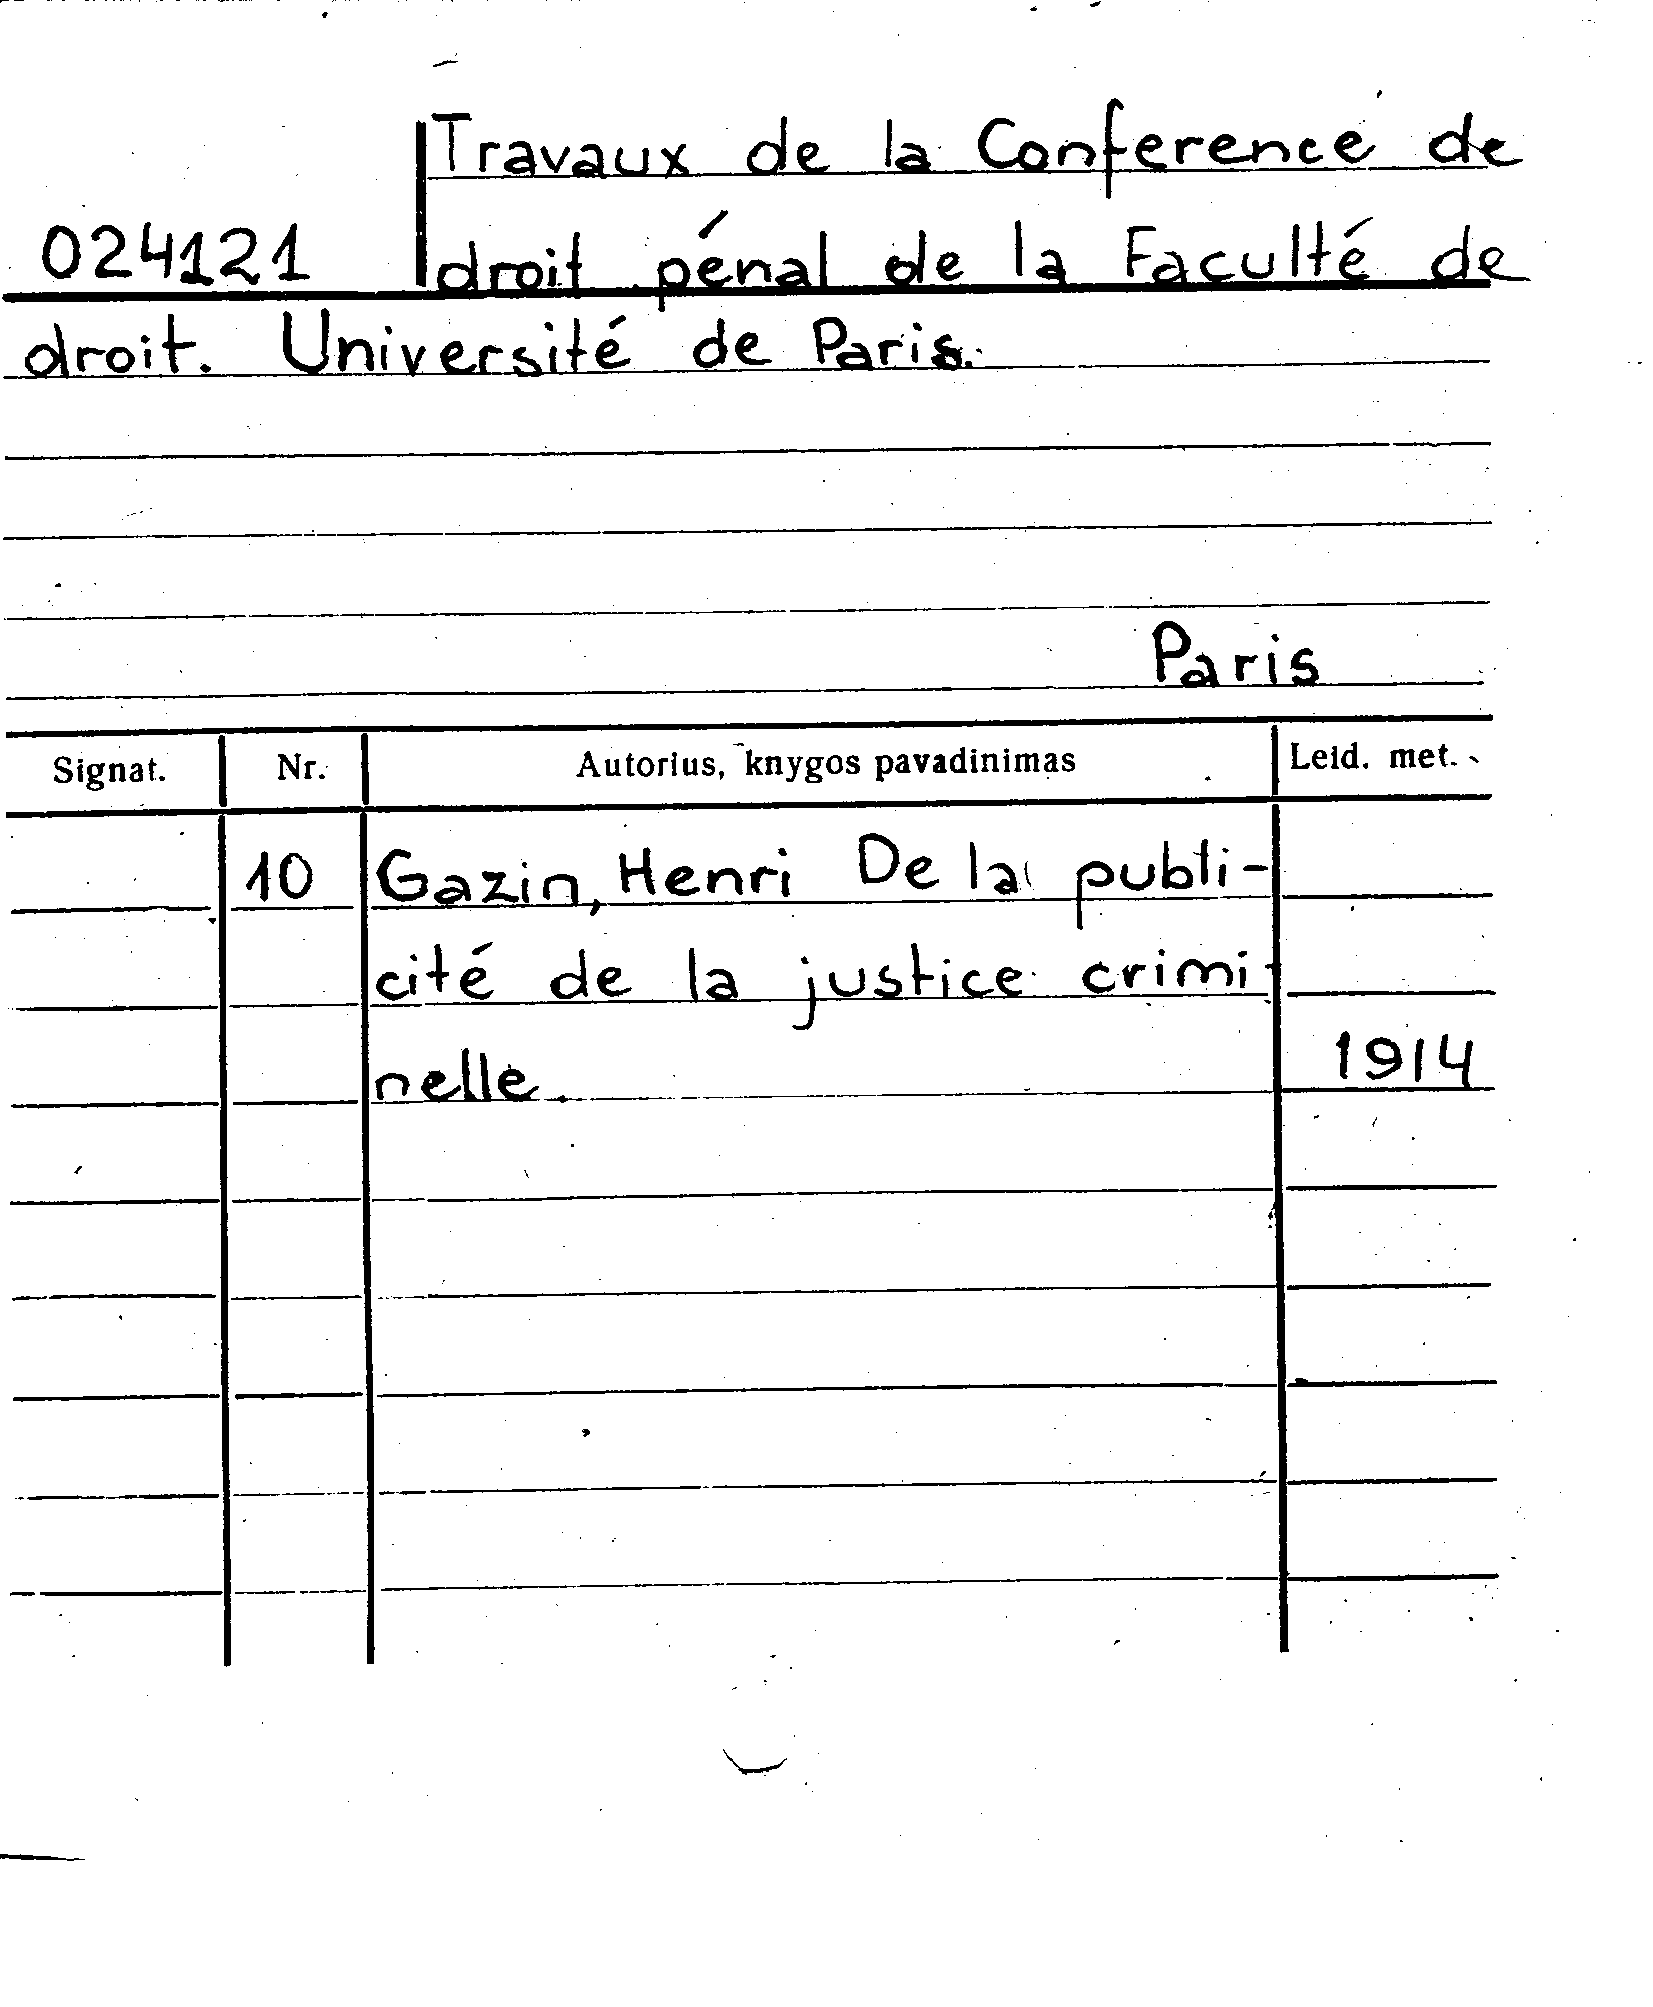 Travaux de la Conference de
024121 droit pénal de la Faculté de
droit. Université de Paris.
Paris
Signat. Nr. Autorius, knygos pavadinimas Leid. met.
10 Gazin, Henri De la publi-
cité de la justice crimi-
nelle. 1914